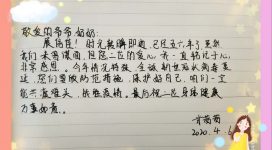 敬爱的爷爷奶奶:
展信佳!时光转瞬即逝,已经五个年了虽然
我们未曾谋面,但您二位的爱心,我一直铭记于心,
非常感恩。今年情况特殊,全球新冠病毒蔓
延,您们要做好防范措施,保护好自己,咱们一定
能共渡难关,战胜疫情。最后祝二位身体健康
万事如意。
肖
2020.4.6